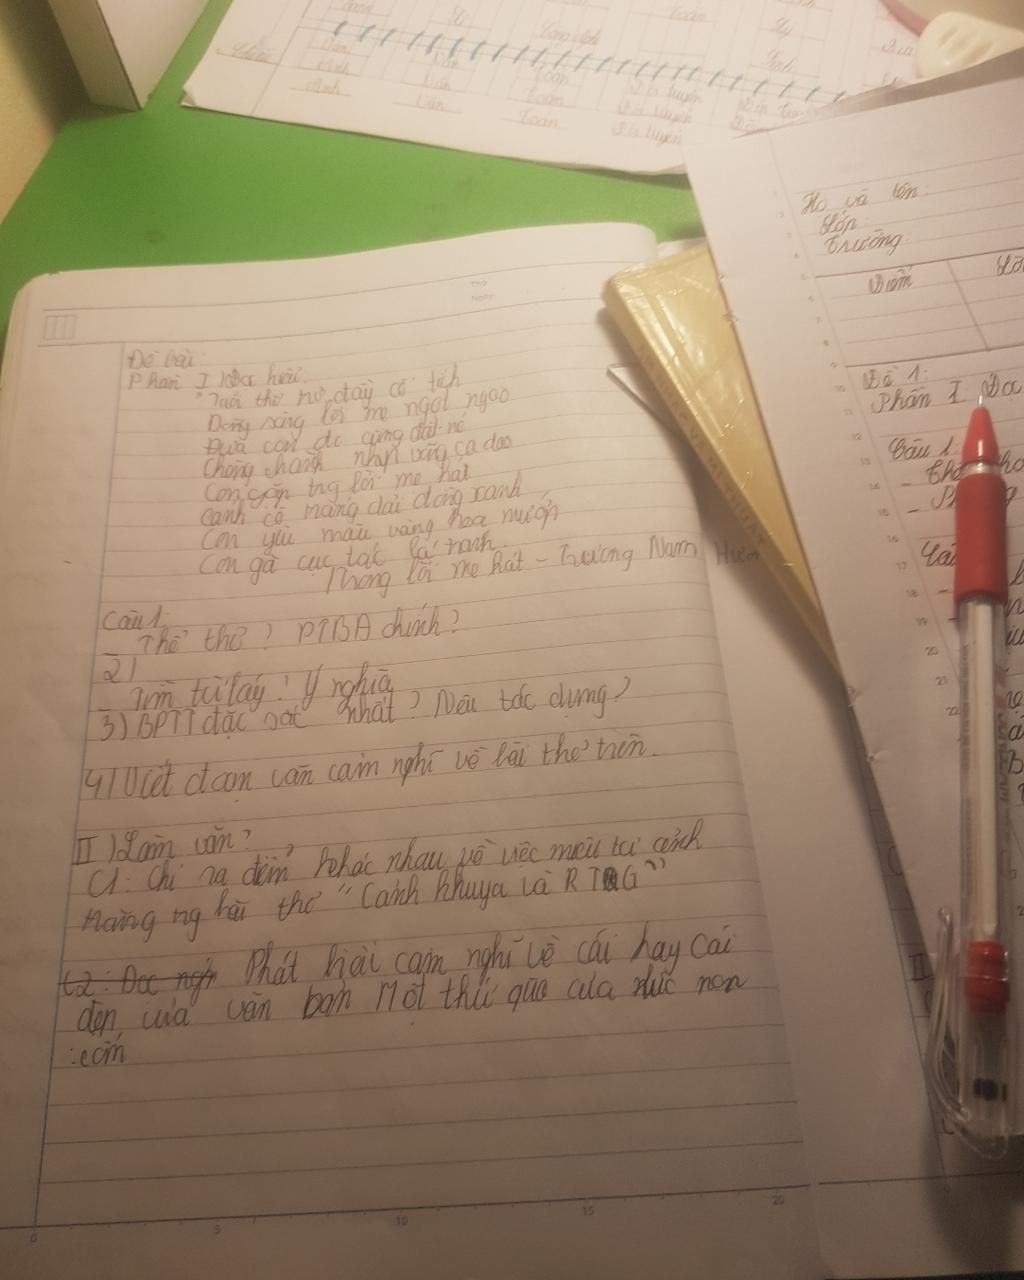 Văn Toán
Anh Văn Toán Đội tuyển
Anh Văn Toán Đội tuyển
Họ và tên:
Lớp:
Trường:
Điểm
Đề 1:
Phần I: Đọc
Câu 1:
Đề bài:
Phần I) Đọc hiểu:
"Tuổi thơ nở đầy cổ tích
Dòng sông lời mẹ ngọt ngào
Đưa con đi cùng đất nc
Chòng chành nhịp võng ca dao
Con gặp trg lời mẹ hát
Cánh cò trắng dải đồng xanh
Con yêu màu vàng hoa mướp
Con gà cục tác lá chanh
Trong lời mẹ hát - Trương Nam Hươn
Câu 1:
Thể thơ? PTBĐ chính?
2)
_ Tìm từ láy! Ý nghĩa
3) BPTT đặc sắc nhất? Nêu tác dụng?
4) Viết đoạn văn cảm nghĩ về bài thơ trên.
II) Làm văn?
C1: Chỉ ra điểm khác nhau về việc miêu tả cảnh
trăng ng bài thơ "Cảnh khuya và RTG"
Phát biểu cảm nghĩ về cái hay cái
đẹp của văn bản Một thứ quà của lúc non
: cốm
0 5 10 15 20